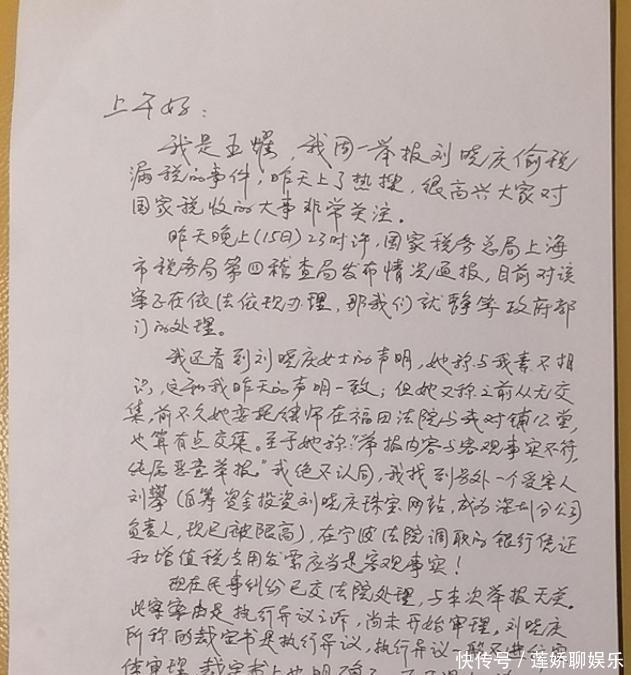 上午好：
我是王耀，我周一举报刘晓庆偷税
漏税的事件，昨天上了热搜，很高兴大家对
国家税收的大事非常关注。
昨天晚上(15日)23时许，国家税务总局上海
市税务局第四稽查局发布情况通报，目前对该
案正在依法依规办理，那我们就静等政府部
门的处理。
我还看到刘晓庆女士的声明，她称与我素不相
识，这和我昨天的声明一致；但她又称之前从无交
集，前不久她委托律师在福田法院与我对铺公堂，
也算有点交集。至于她称："举报内容与客观事实不符，
纯属恶意举报。"我绝不认同，我找到另外一个受害人
刘攀（自筹资金投资刘晓庆珠宝网站，成为深圳分公司
负责人，现已被限高），在宁波法院调取的银行凭证
和增值税专用发票应当是客观事实！
现在民事纠纷已交法院处理，与本次举报无关。
此案案由是执行异议之诉，尚未开始审理。刘晓庆
所称的裁定书是执行异议，执行异议一般不进行实
体审理，裁定书上也明确了
快传号／莲娇聊娱乐